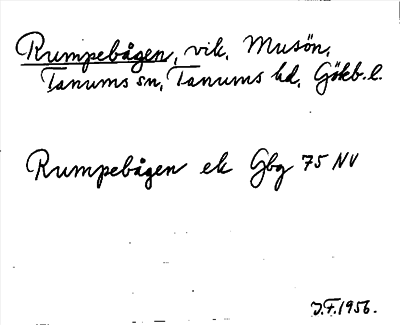 Rumpebågen, vik, Musön,
Tanums sn, Tanums hd, Göteb. l.
Rumpebågen ek Gbg 75 NV
J.F. 1956.